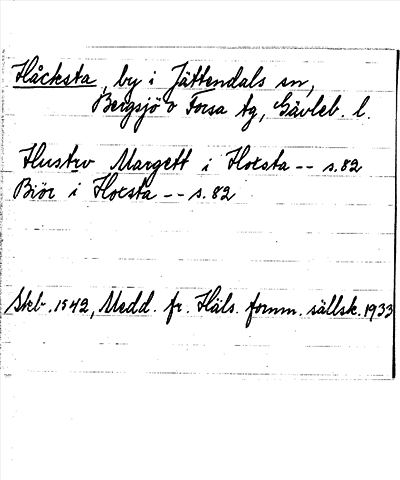 Håcksta, by i Jättendals sn,
Bergsjö o Forsa tg, Gävleb. l.
Hustrv Margett i Hocsta -- s. 82
Biör i Hocsta -- s. 82
Skb. 1542, Medd. fr. Häls. fornm. sällsk. 1933